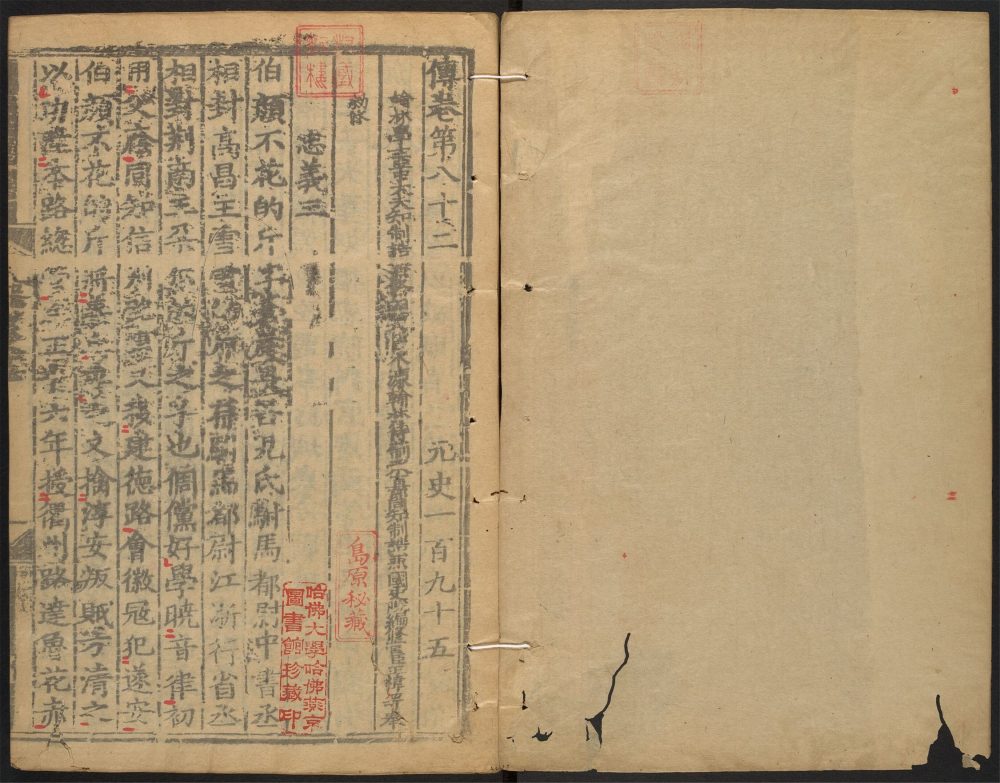 傳卷第八十二　元史一百九十五
翰林學士亞中大夫知制誥兼修國史臣宋濂翰林待制承直郎同知制誥兼國史院編修官臣王禕等奉
勑修
忠義三
伯顏不花的斤字蒼崖畏吾兒氏駙馬都尉中書丞
相封高昌王雪雪的斤之孫駙馬都尉江浙行省丞
相封荊南王朵爾的斤之子也倜儻好學曉音律初
用父廕同知信州路事又移建德路會徽冦犯遂安
伯顏不花的斤將義兵平之又擒淳安叛賊方清之
以功陞本路総管至正十六年授衢州路達魯花赤
島原秘藏
哈佛大學哈佛燕京
圖書館珍藏印